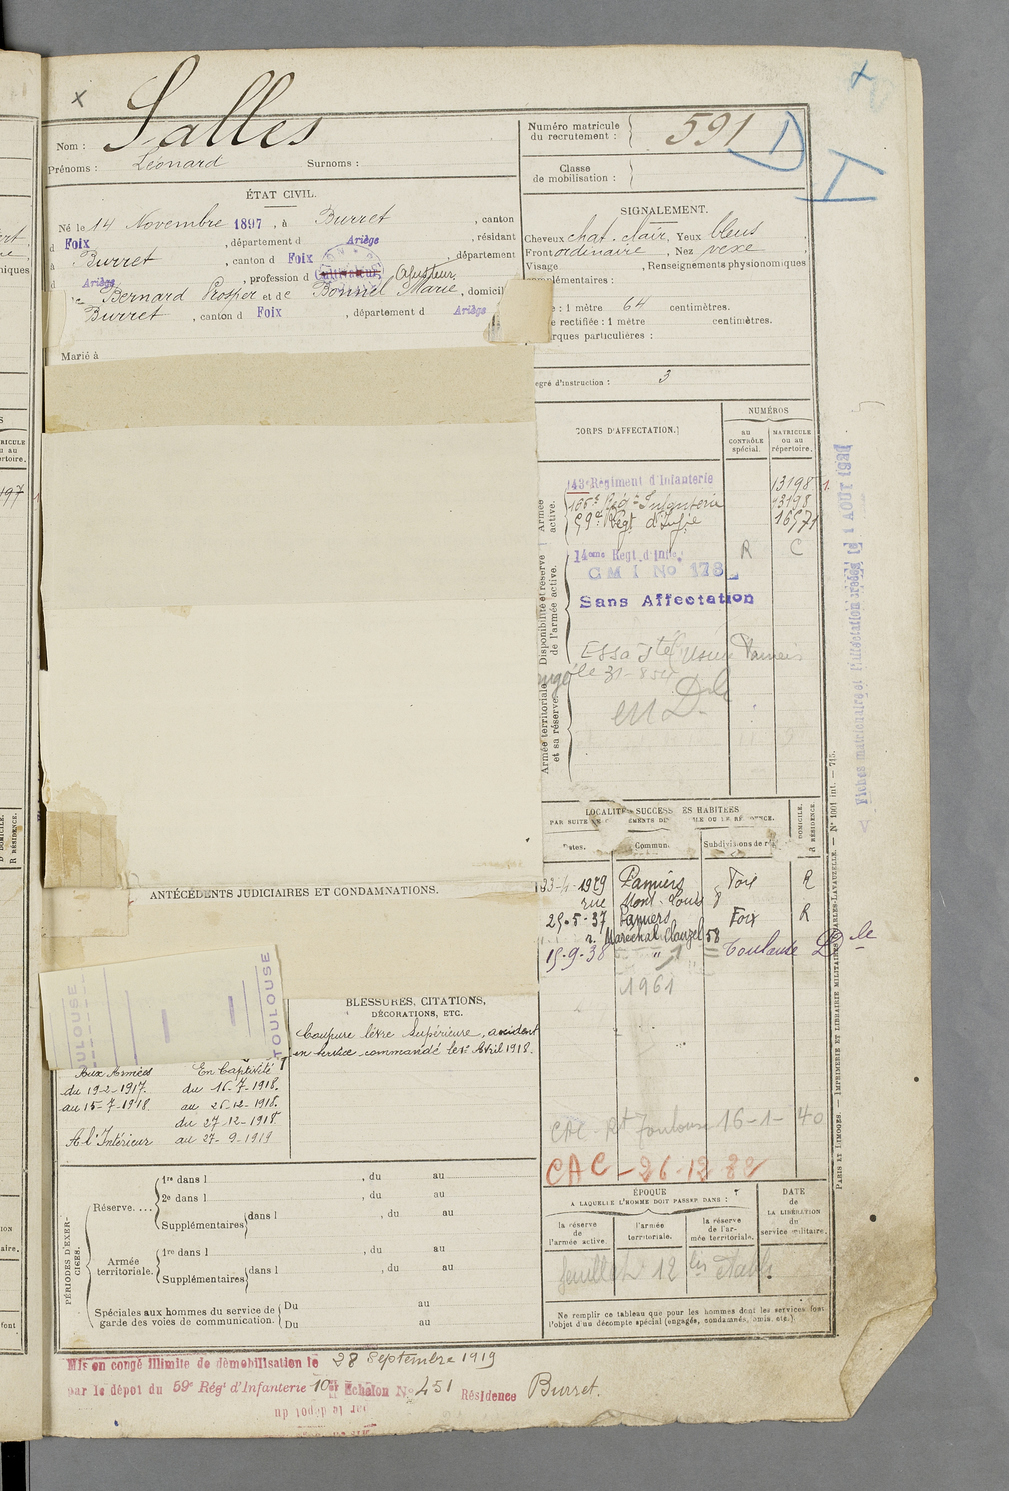 Salles
Nom :
Prénoms : Léonard Surnoms :
Numéro matricule
du recrutement : 591
D
I
Classe
de mobilisation :
ÉTAT CIVIL.
Né le 14 Novembre 1897, à Burret, canton
d Foix, département d Ariège, résidant
à Burret, canton d Foix, département
d Ariège, profession d Cultivateur, Ajusteur
Bernard Prosper et de Bonnel Marie, domicil
Burret, canton d Foix, département d Ariège
Marié à
SIGNALEMENT.
Cheveux chat. clair, Yeux bleus
Front ordinaire, Nez vexe
Visage , Renseignements physionomiques
complémentaires :
e : 1 mètre 64 centimètres.
e rectifiée : 1 mètre centimètres.
arques particulières :
egré d'instruction : 3
CORPS D'AFFECTATION.
NUMÉROS
au contrôle spécial.
matricule ou au répertoire.
Armée active.
143e Régiment d'Infanterie 13198
166e Régt Infanterie 13198
59e Régt d'Infie 16571
Disponibilité et réserve de l'armée active.
14ème Regt d'Infie. R C
G M I No 178
Sans Affectation
Armée territoriale et sa réserve.
Usine Pamiers
Fiches matriculaire et d'affectation créées le 1 AOUT 193
LOCALITÉS SUCCESSIVES HABITÉES
Dates. Commun Subdivisions de
DOMICILE.
R RÉSIDENCE.
23-4-1929 Pamiers Foix R
rue Mont-Louis 8
25-5-37 Pamiers Foix R
r. Maréchal Clauzel 58
15-9-38 " Toulouse Dle
1961
ANTÉCÉDENTS JUDICIAIRES ET CONDAMNATIONS.
TOULOUSE
BLESSURES, CITATIONS,
DÉCORATIONS, ETC.
Coupure lèvre supérieure, accident
en service commandé le 1er Avril 1918.
Aux Armées En Captivité
du 19-2-1917. du 16-7-1918.
au 15-7-1918. au 26-12-1918.
du 27-12-1918
A l'Intérieur au 27-9-1919
CAC - Rt Toulouse 16-1-40
CAC - 26-12-22
PÉRIODES D'EXERCICES.
Réserve....
1re dans l , du au
2e dans l , du au
Supplémentaires dans l , du au
Armée territoriale.
1re dans l , du au
Supplémentaires dans l , du au
Spéciales aux hommes du service de
garde des voies de communication.
Du au
Du au
ÉPOQUE
A LAQUELLE L'HOMME DOIT PASSER DANS :
la réserve de l'armée active.
l'armée territoriale.
la réserve de l'armée territoriale.
DATE
de
LA LIBÉRATION
du
service militaire.
feuillet 12 établi
Ne remplir ce tableau que pour les hommes dont les services font
l'objet d'un décompte spécial (engagés, condamnés, omis, etc.)
PARIS ET LIMOGES. — IMPRIMERIE ET LIBRAIRIE MILITAIRES CHARLES-LAVAUZELLE. — N° 1001 int. — 715.
Mis en congé illimité de démobilisation le 28 Septembre 1919
par le dépôt du 59e Régt d'Infanterie 10er Echelon No 451 Résidence Burret.